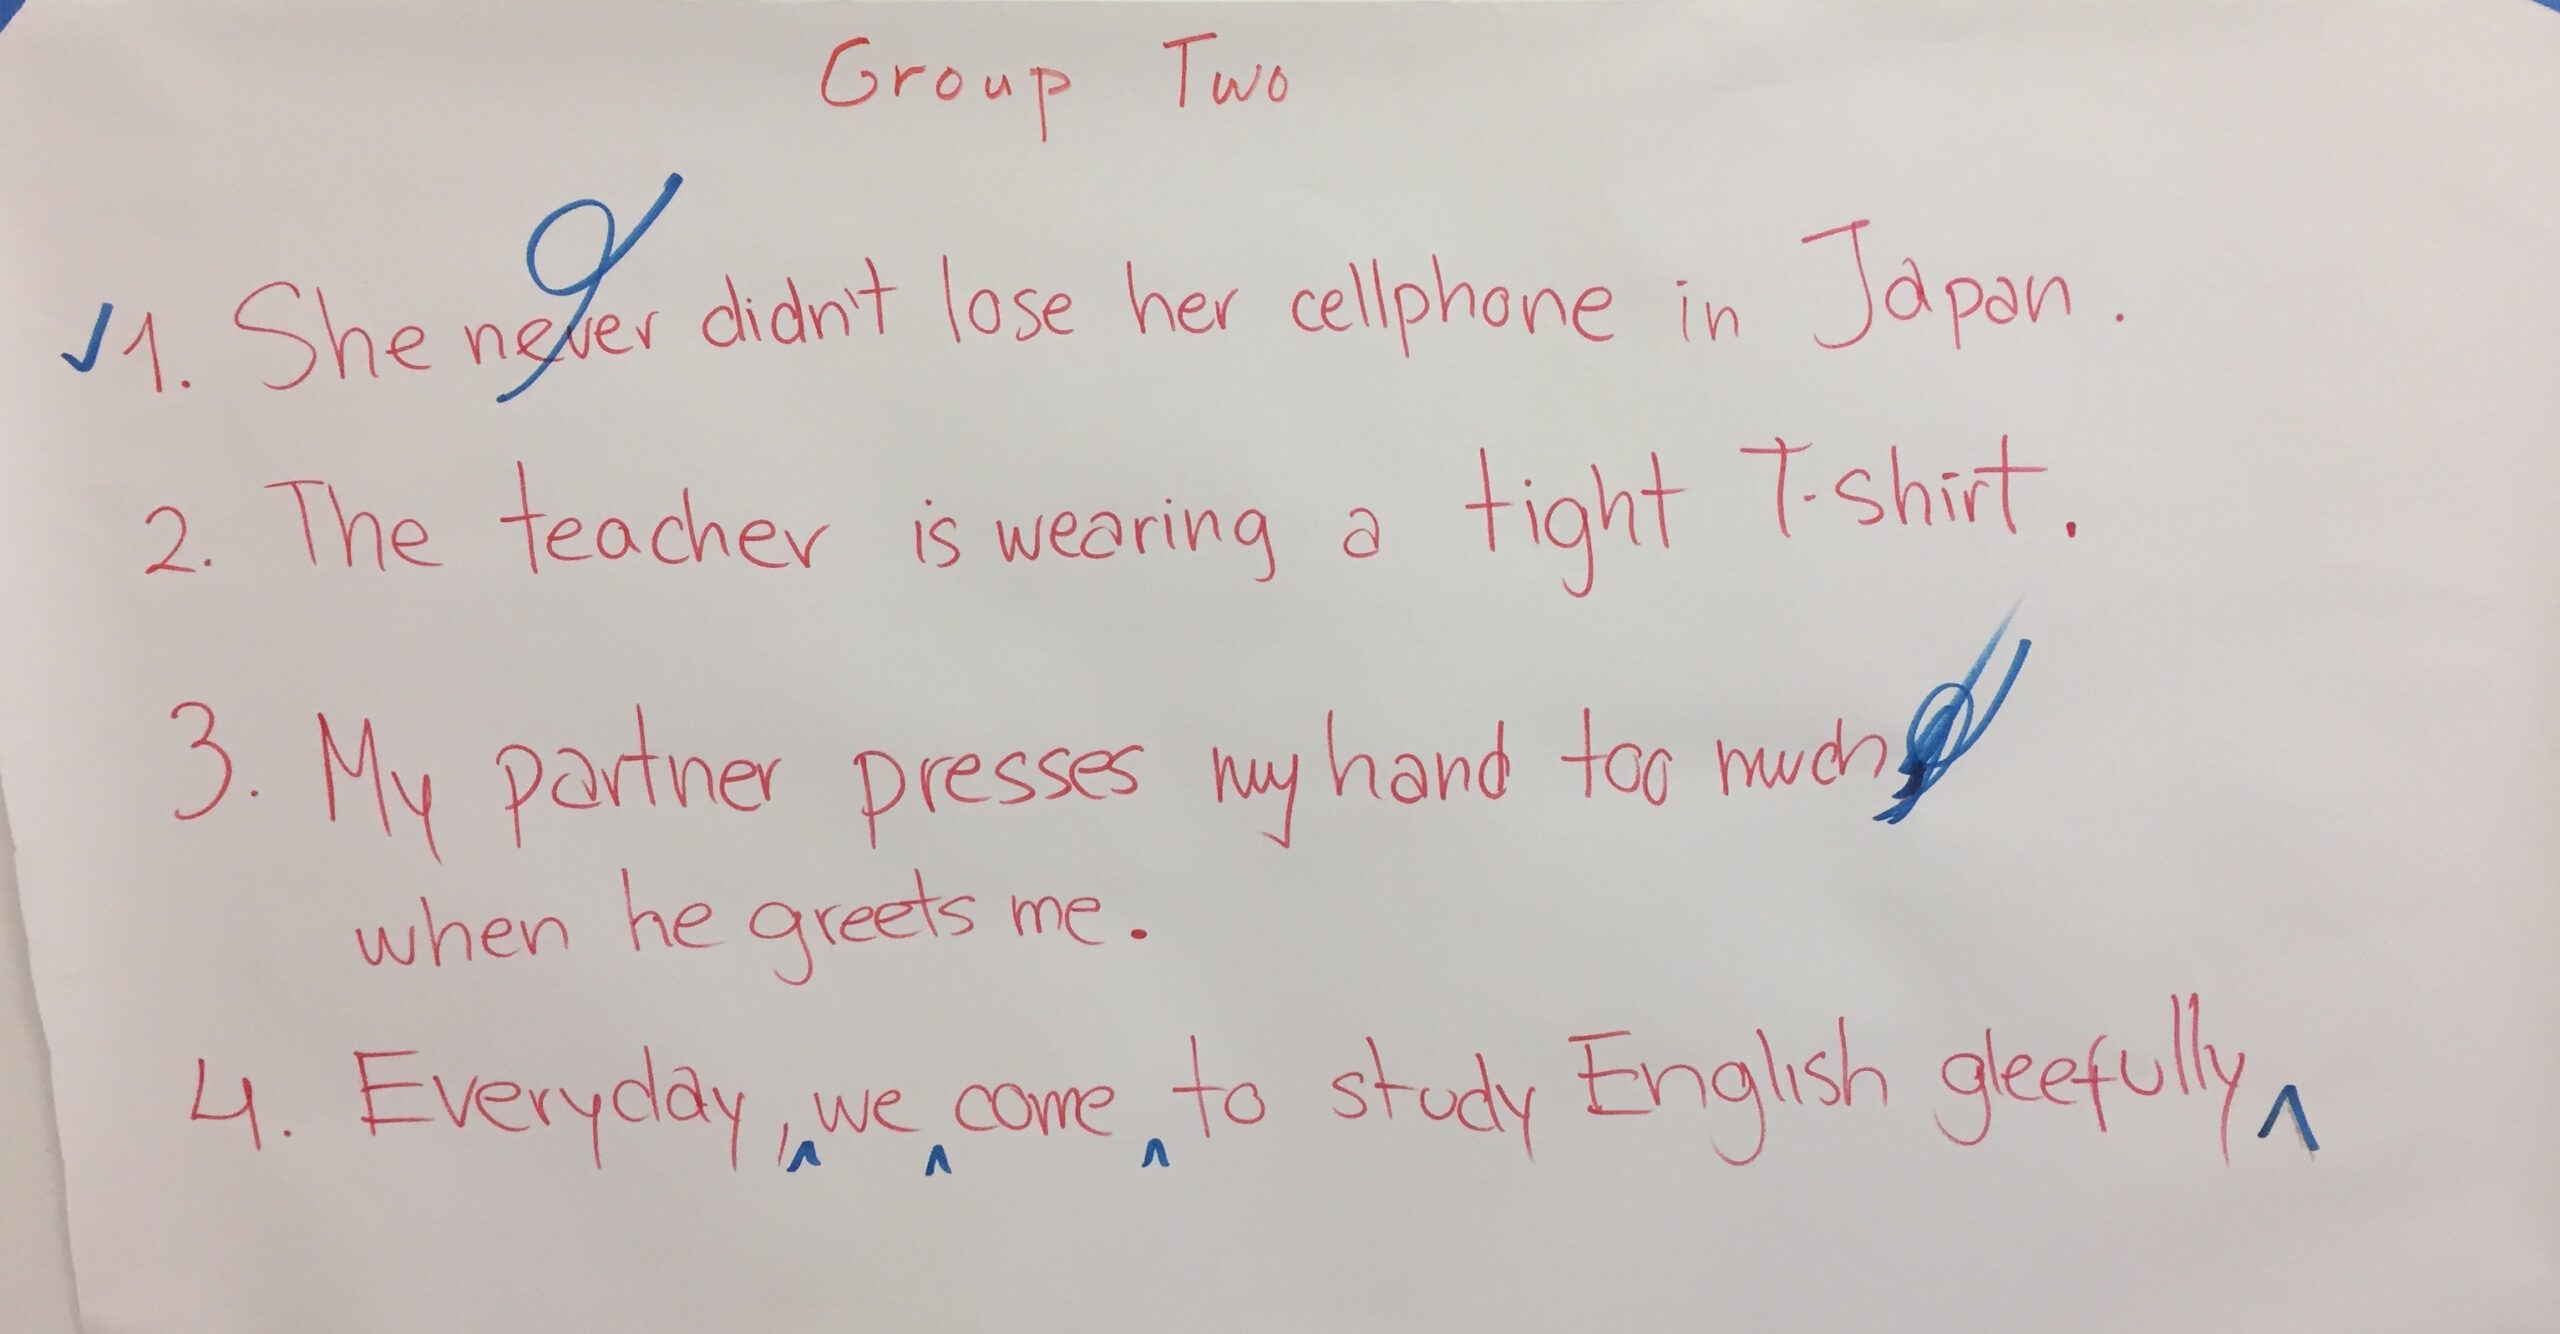 Group Two
1. She never didn't lose her cellphone in Japan.
2. The teacher is wearing a tight T-shirt.
3. My partner presses my hand too much
when he greets me.
4. Everyday, we come to study English gleefully